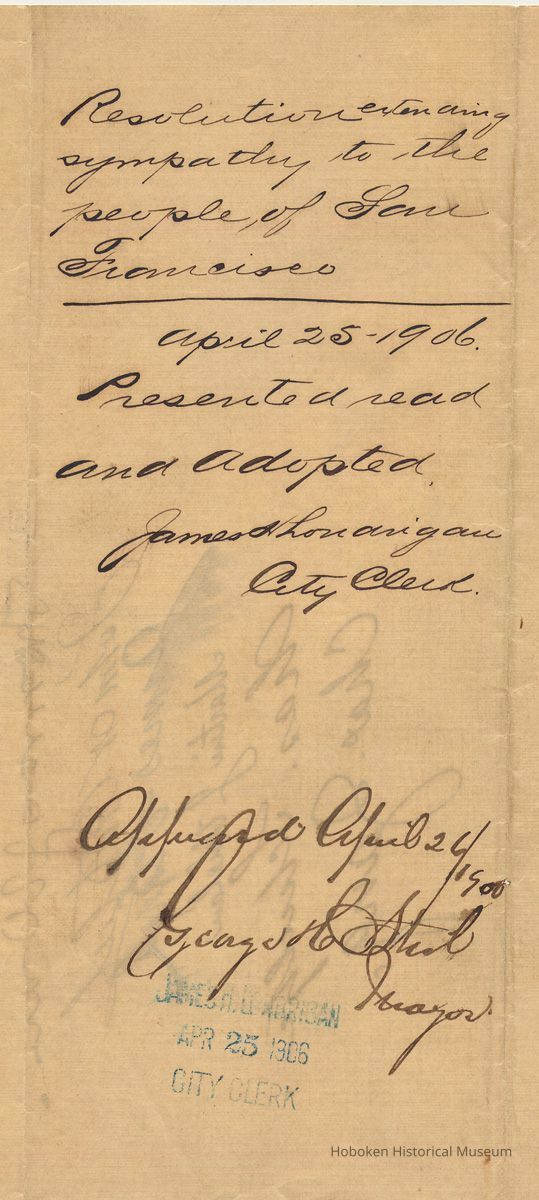 Resolution extending
sympathy to the
people, of San
Francisco
April 25-1906.
Presented read
and Adopted.
James H Londrigan
City Clerk.
Approved April 26/
George H Steil
Mayor
JAMES H. LONDRIGAN
APR 25 1906
CITY CLERK
Hoboken Historical Museum